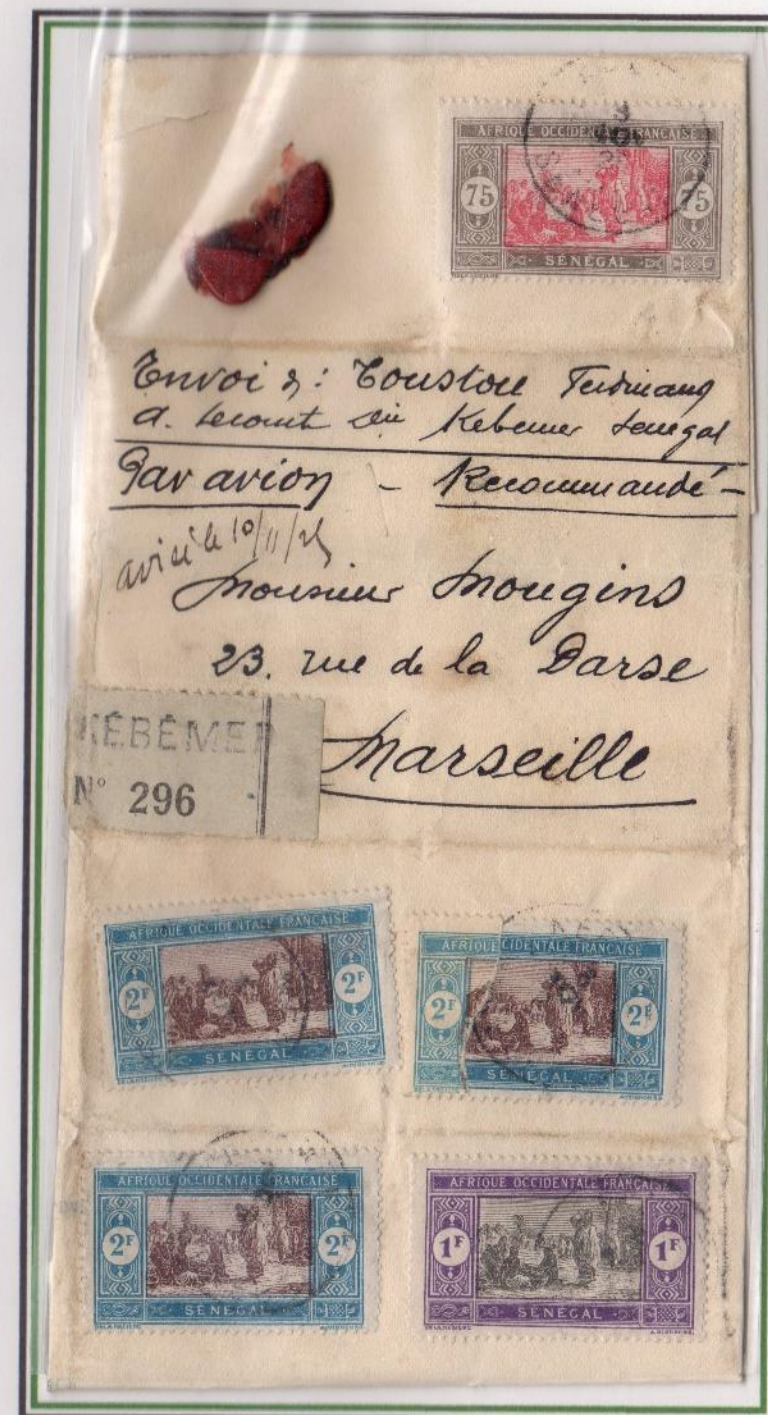 AFRIQUE OCCIDENTALE FRANÇAISE
75 75
SÉNÉGAL
Envoi
Kebemer Senegal
Par avion - Recommandé -
avisé le 10/11/25
Monsieur Mougins
23. rue de la Darse
Marseille
KÉBÉMER
N° 296
AFRIQUE OCCIDENTALE FRANÇAISE
2F 2F
SÉNÉGAL
AFRIQUE CIDENTALE FRANÇAISE
2F 2F
SÉNÉGAL
AFRIQUE OCCIDENTALE FRANÇAISE
2F 2F
SÉNÉGAL
AFRIQUE OCCIDENTALE FRANÇAISE
1F 1F
SÉNÉGAL